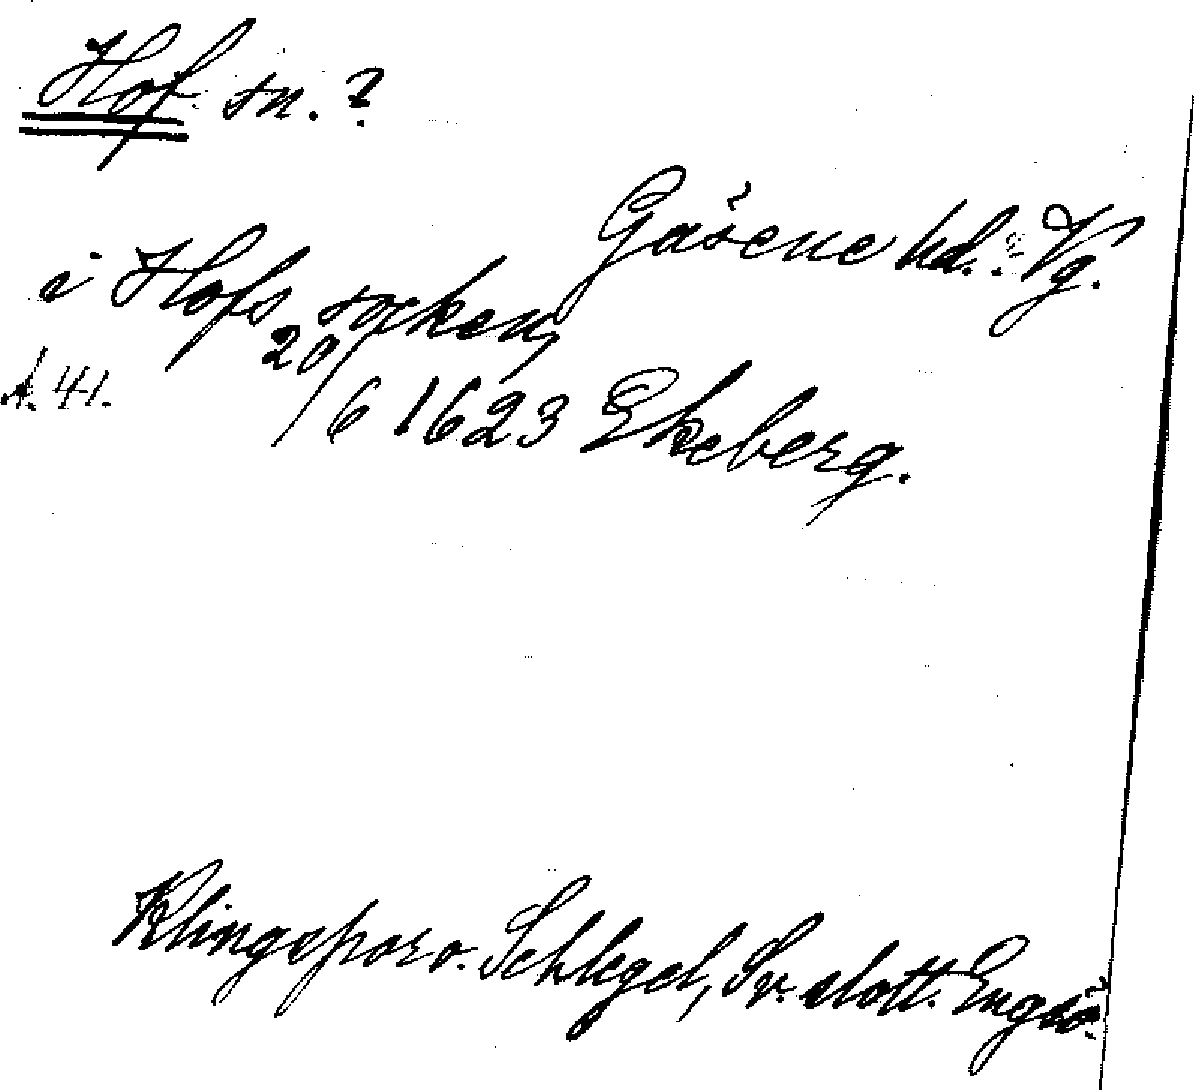 Hof sn. ?
Gäsene hd. Vg.
i Hofs socken,
A. 41. 20/6 1623 Ekeberg.
Klingspor o. Schlegel, Sv. slott. Engsö.